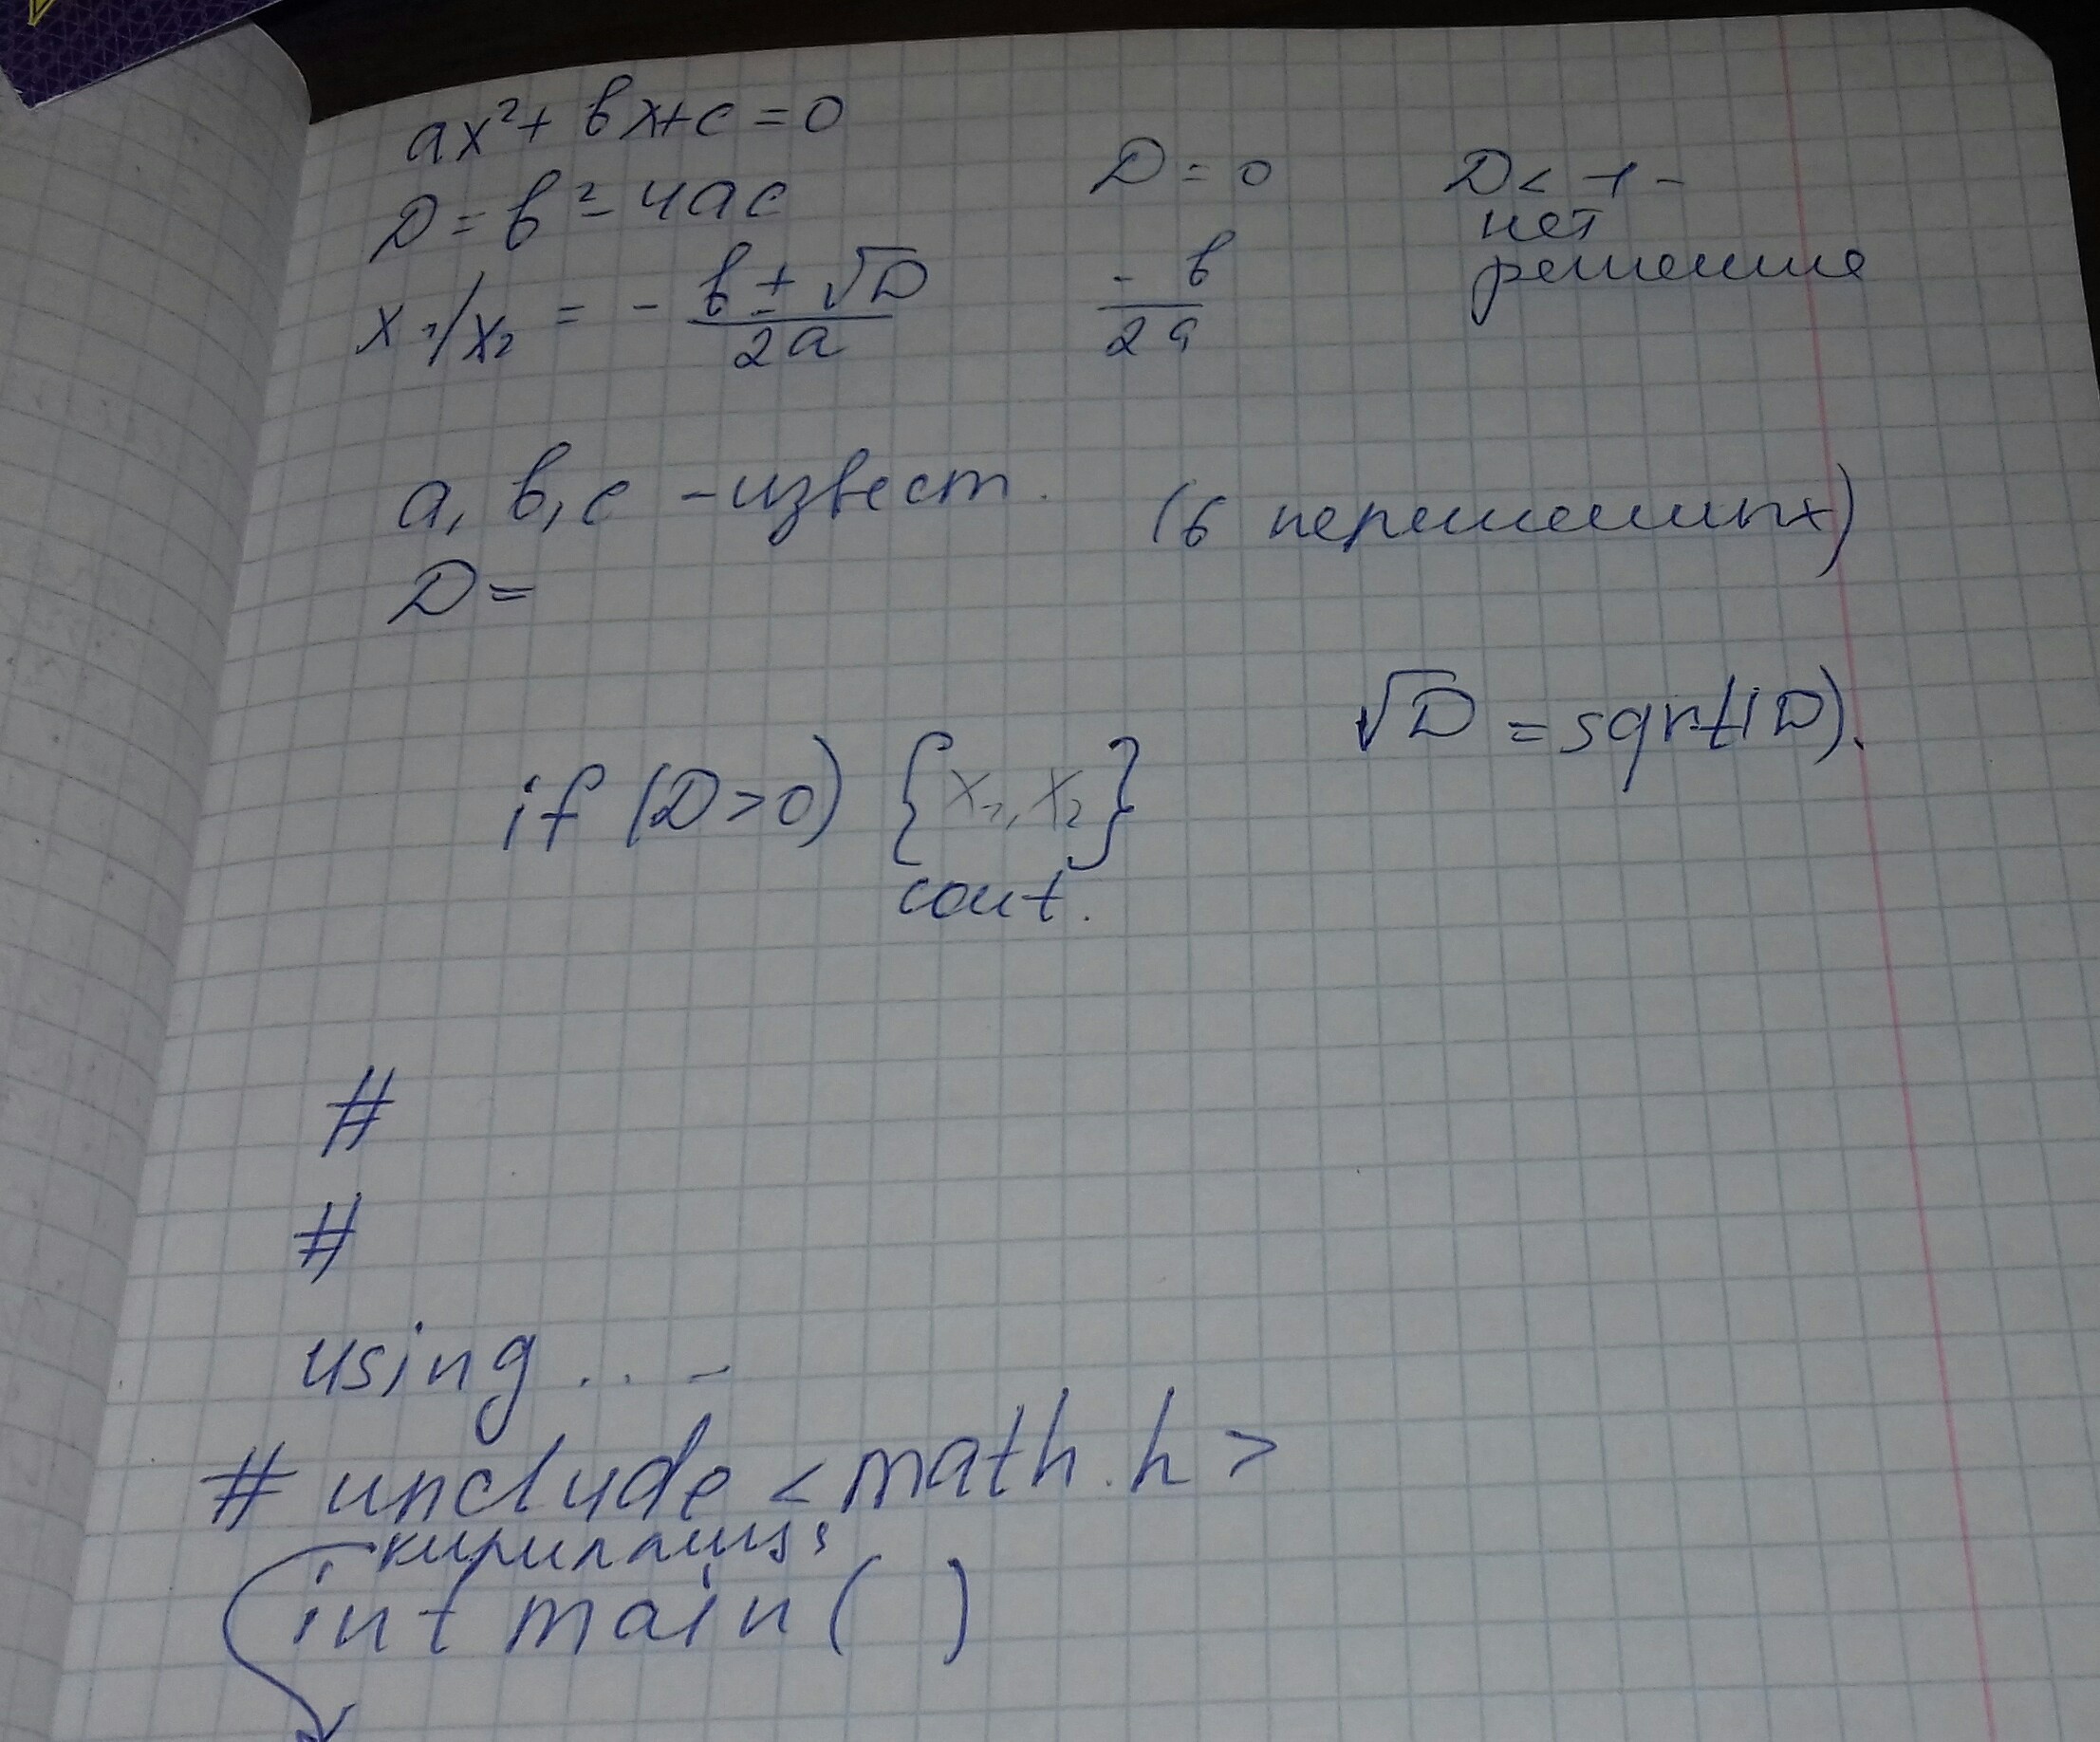 ax² + bx + c = 0
D = b² - 4ac
x₁/x₂ = - b ± √D / 2a
D = 0
- b / 2a
D < -1 -
нет
решение
a, b, c - извест.
(6 переменных)
D =
√D = sqrt(D).
if (D > 0) {x₁, x₂}
cout.
#
#
using . . -
# unclude < math.h >
int main ( )